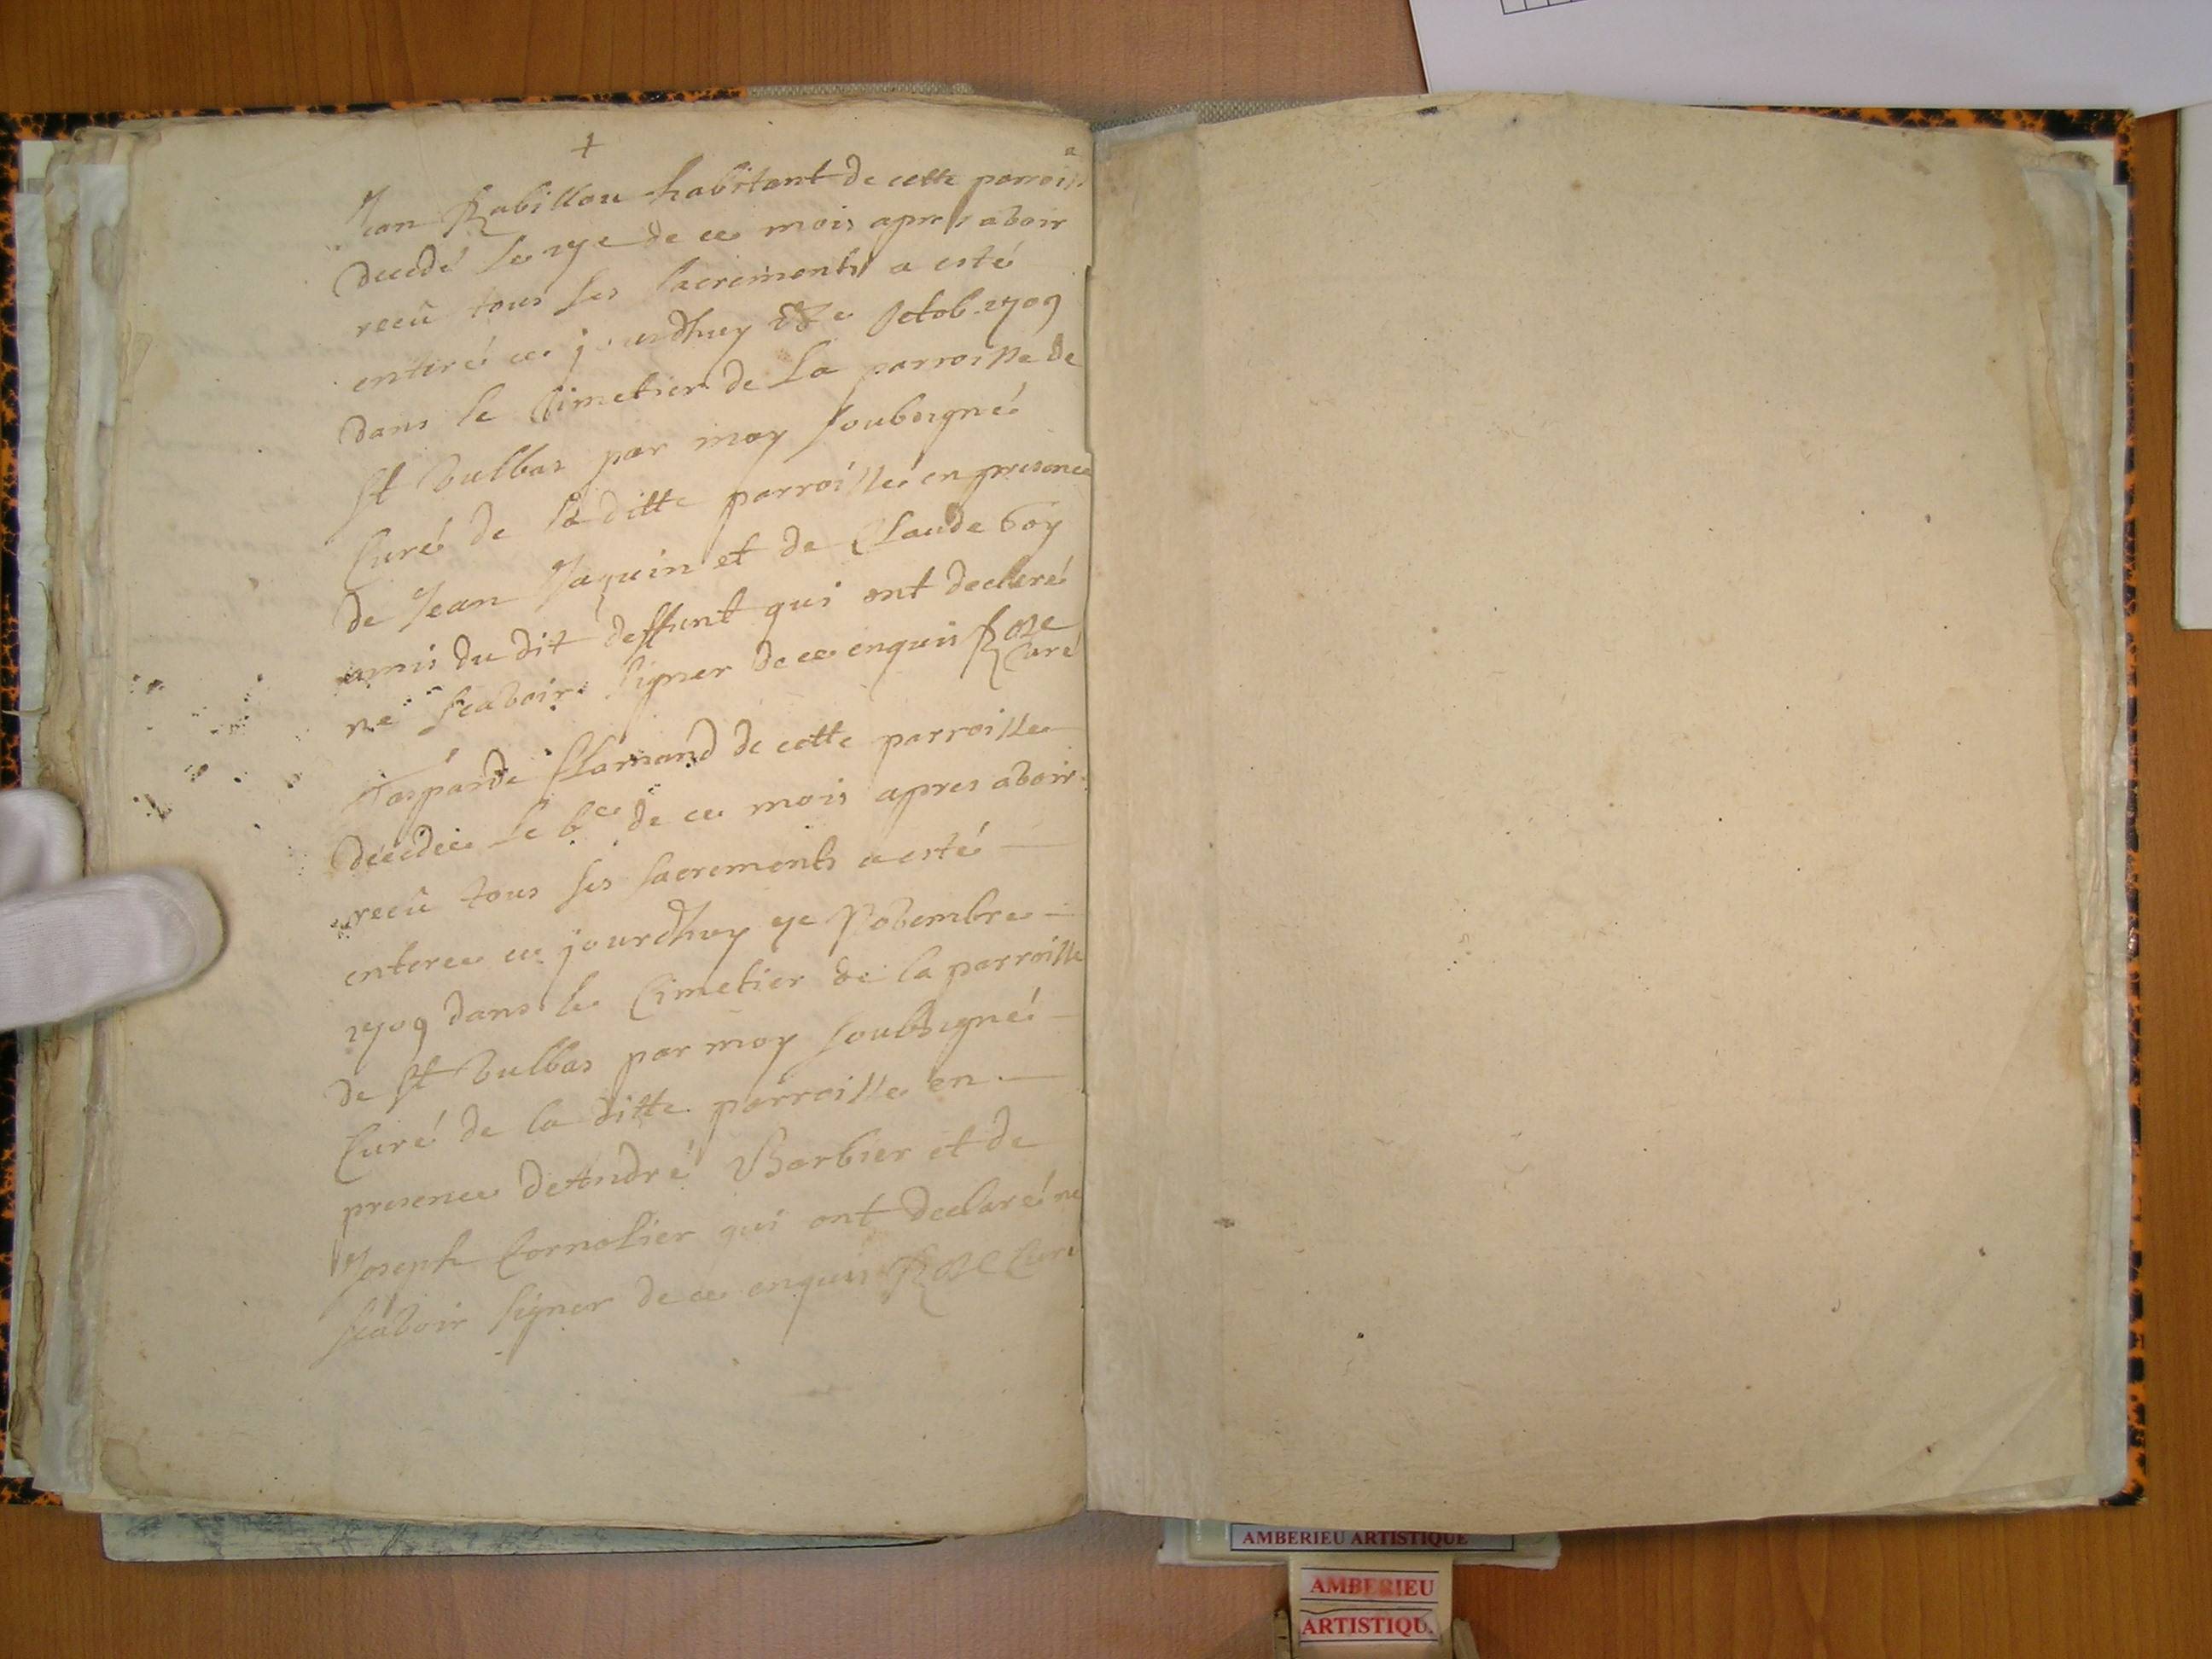 +
Jean Rabillou habitant de cette parrois.
decedé le 17e de ce mois apres avoir
receû tous ses sacrements a esté
enteré ce jourdhuy 18e Octob. 1709
dans le Cimetier de La parroisse de
St Vulbas par moy soubsigné
Curé de la ditte parroisse en presence
de Jean Jaquin et de Claude Goy
amis du dit deffunt qui ont declaré
ne scavoir signer de ce enquis Roze
Curé
Gasparde Flamand de cette parroisse
decedée le 6e de ce mois apres avoir
receû tous ses sacrements a esté
enteree ce jourdhuy 7e Novembre
1709 dans le Cimetier de la parroisse
de St Vulbas par moy soubsigné
Curé de la ditte parroisse en
presence de André Barbier et de
Joseph Cornolier qui ont declaré ne
scavoir signer de ce enquis Roze Curé
AMBERIEU ARTISTIQUE
AMBERIEU
ARTISTIQU